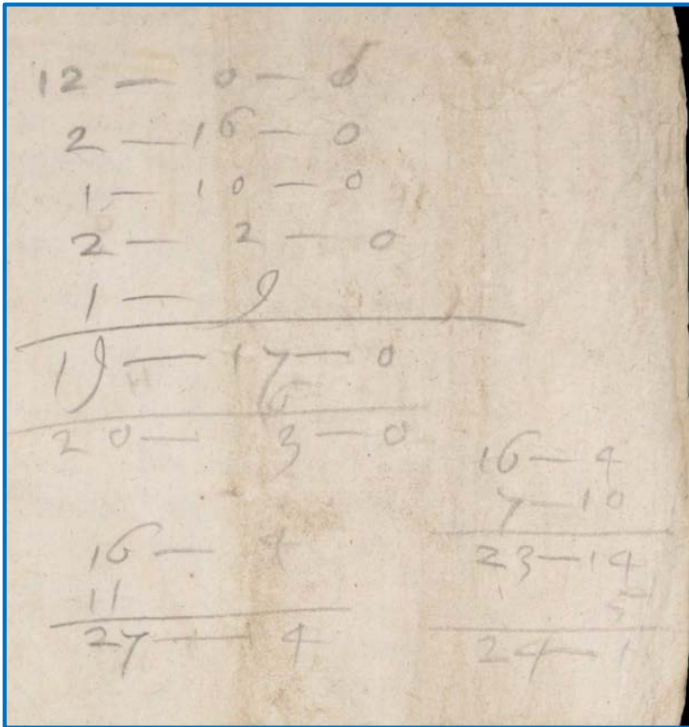 12 — 0 — 0
2 — 16 — 0
1 — 10 — 0
2 — 2 — 0
1 — 9
19 — 17 — 0
6
20 — 3 — 0
16 — 4
11
27 — 4
16 — 4
7 — 10
23 — 14
24 — 1